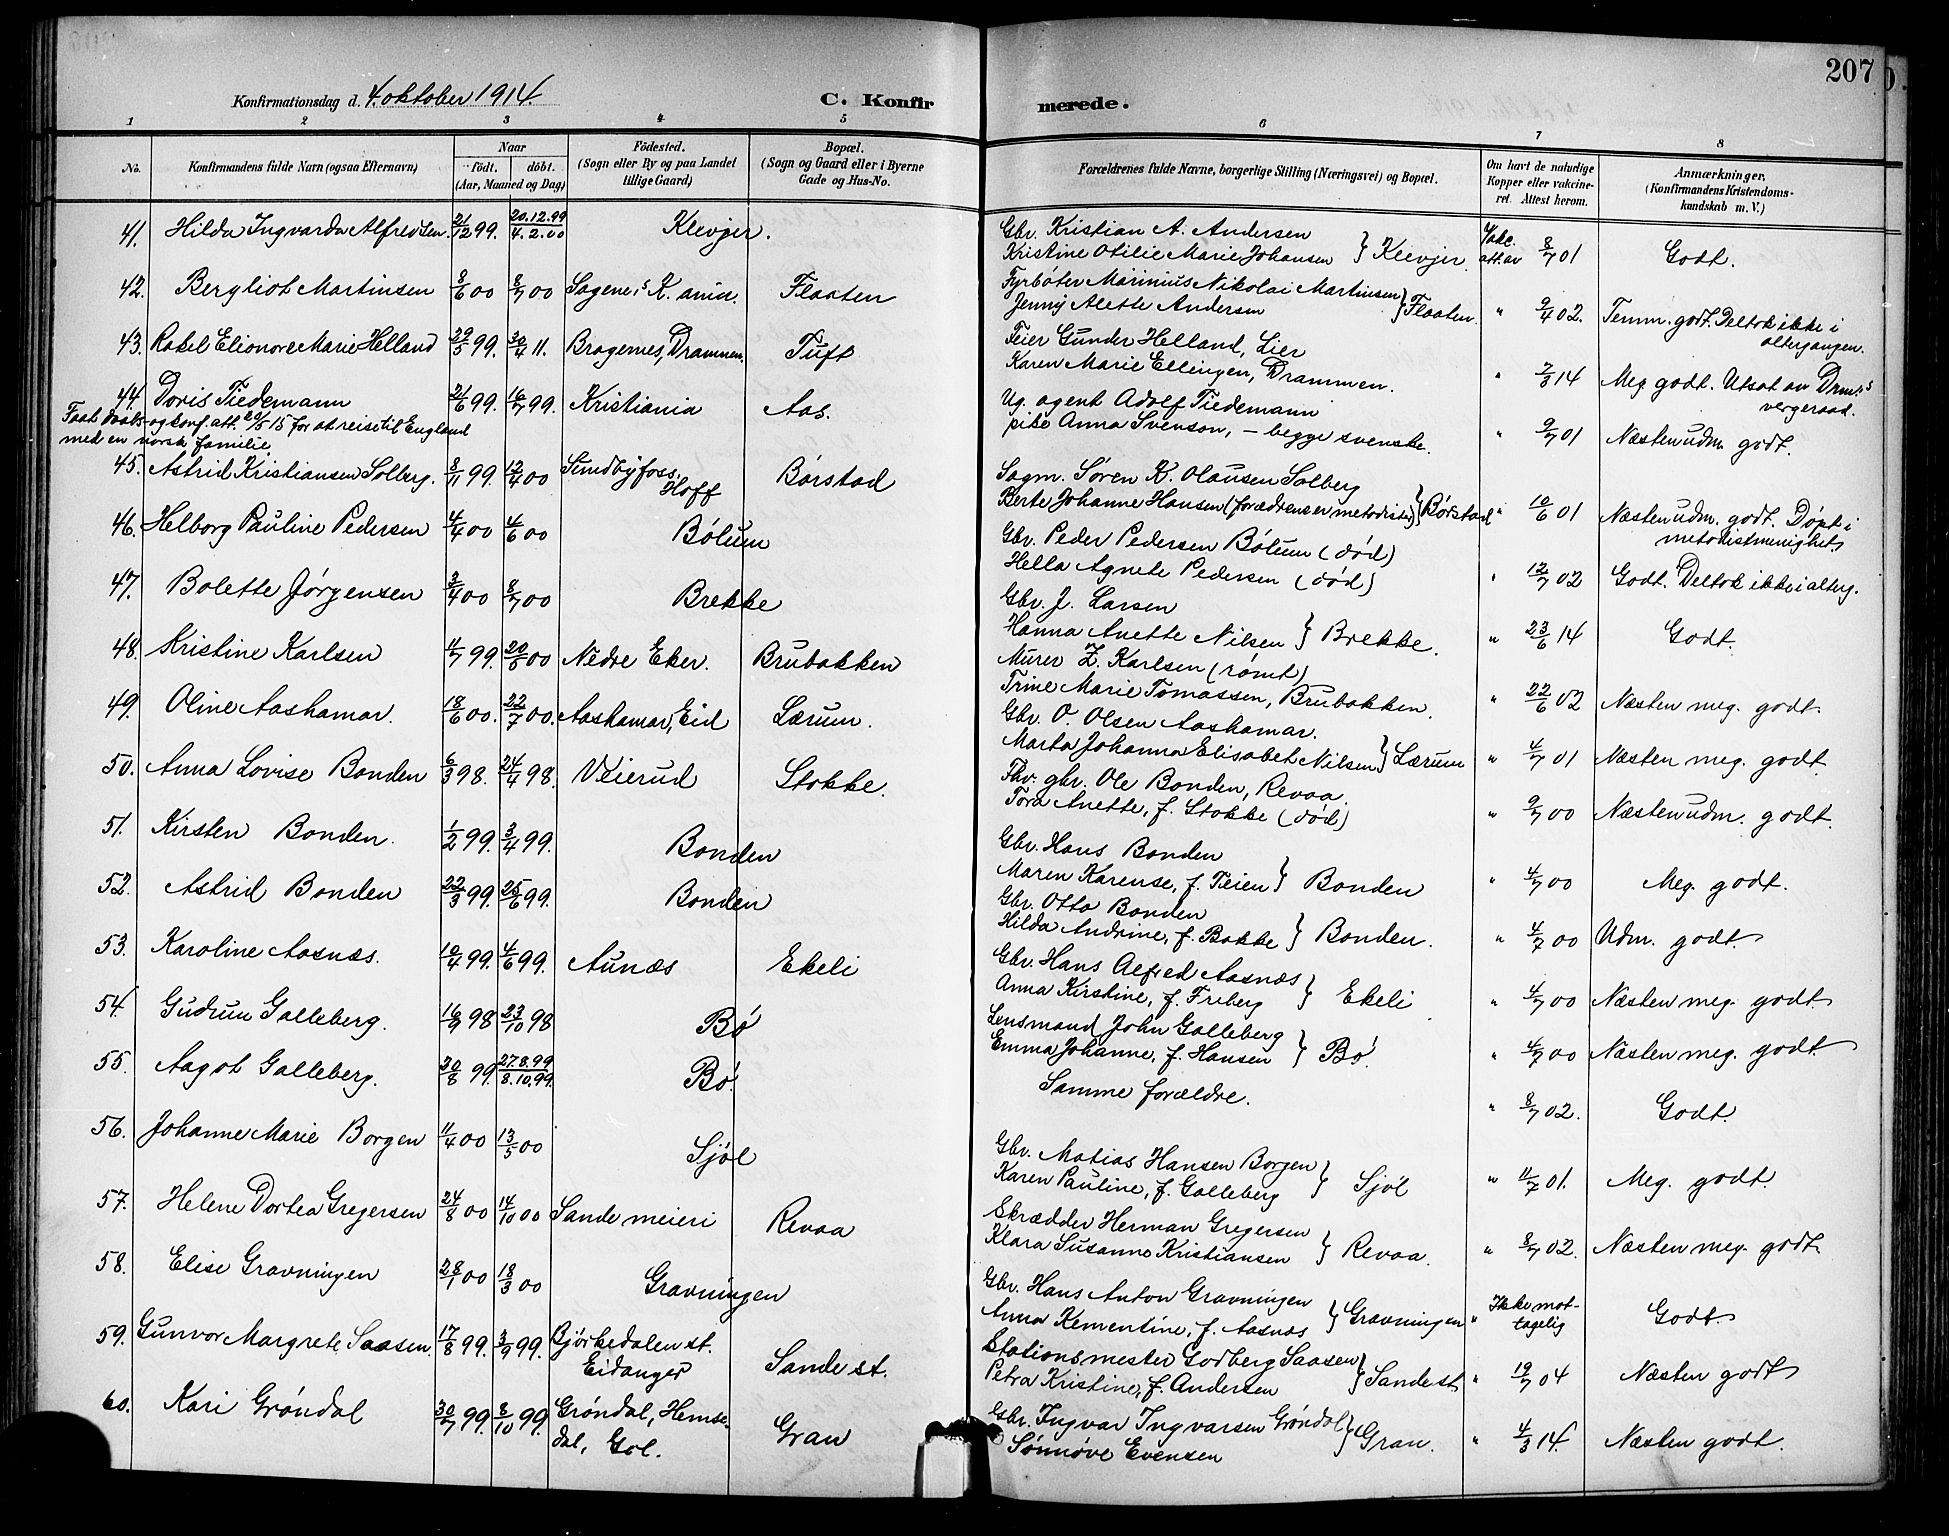 207
Konfirmationsdag d. 4. oktober 1914.
C. Konfirmerede.
1 2 3 4 5 6 7 8
No. Konfirmandens fulde Navn (ogsaa Efternavn) Naar födt. döbt. (Aar, Maaned og Dag) Födested. (Sogn eller By og paa Landet tillige Gaard) Bopæl. (Sogn og Gaard eller i Byerne Gade og Hus-No. Forældrenes fulde Navne, borgerlige Stilling (Næringsvei) og Bopæl. Om havt de naturlige Kopper eller vakcineret. Attest herom. Anmærkninger. (Konfirmandens Kristendomskundskab m. V.)
41. Hilda Ingvarda Alfredsen. 21/12 99. 20.12.99 4.2.00 Klevjer. Gbr. Kristian A. Andersen
Kristine Otilie Marie Johansen } Klevjer. Vakc. att. av 8/7 01 Godt.
42. Bergliot Martinsen 8/6 00 8/7 00 Sagene, Flaaten Fyrbøter Marinius Nikolai Martinsen
Jenny Alette Andersen } Flaaten. " 9/4 02. Temm. godt. Deltok ikke i altergangen.
43. Rakel Elionore Marie Helland 29/5 99. 30/4 11. Bragernes, Drammen. Tuft Feier Gunder Helland, Lier
Karen Marie Ellingen, Drammen. " 7/8 14 Meg godt. Utsat av Drm.s vergeraad.
44. Doris Tiedemann 21/6 99. 16/7 99. Kristiania Aas. Ug. agent Adolf Tiedemann
pike Anna Svenson, — begge svenske. " 9/7 01 Næsten udm. godt.
Faat daabs- og konf. att. 20/5 15 for at reise til England
med en norsk familie.
45. Astrid Kristiansen Solberg. 8/11 99. 12/4 00 Sundbyfoss, Hoff Børstad Sagm. Søren K. Olausen Solberg
Berte Johanne Hansen (forældrene er metodister) } Børstad " 10/6 01 Næsten udm. godt. Døpt i metodistmenighet
46. Helborg Pauline Pedersen 4/4 00 4/6 00 Bølum Gbr. Peder Pedersen Bølum (død)
Hella Agnete Pedersen (død) " 12/7 02 Godt. Deltok ikke i alterg.
47. Bolette Jørgensen 3/4 00 8/7 00 Brekke Gbr. J. Larsen
Hanna Anette Nilsen } Brekke. " 23/6 14 Godt.
48. Kristine Karlsen 4/7 99. 20/5 00 Nedre Eker. Brubakken Murer Z. Karlsen (rømt)
Trine Marie Tomassen, Brubakken. " 22/6 02 Næsten meg. godt
49. Oline Aashamar. 18/6 00. 22/7 00. Aashamar, Eid Lærum. Gbr. O. Olsen Aashamar.
Marta Johanna Elisabet Nilsen } Lærum " 4/7 01 Næsten meg. godt.
50. Anna Lovise Bonden 6/3 98. 24/4 98. Veierud Stokke. Fhv. gbr. Ole Bonden, Revaa.
Tora Anette, f. Stokke (død) " 9/7 00 Næsten udm. godt.
51. Kirsten Bonden. 1/2 99. 3/4 99. Bonden Gbr. Hans Bonden
Maren Karense, f. Teien } Bonden " 4/7 00 Meg. godt.
52. Astrid Bonden 22/3 99. 25/6 99. Bonden Gbr. Otto Bonden
Hilda Andrine, f. Bakke } Bonden. " 4/7 00 Udm. godt.
53. Karoline Aasnæs. 10/4 99. 4/6 99. Aunæs Ekeli Gbr. Hans Alfred Aasnæs
Anna Kirstine, f. Friberg } Ekeli " 4/7 00 Næsten meg. godt
54. Gudrun Galleberg. 16/9 98 23/10 98 Bø Lensmand John Galleberg
Emma Johanne, f. Hansen } Bø. " 4/7 00 Næsten meg. godt.
55. Aagot Galleberg. 30/8 99. 27.8.99 8.10.99. Bø. Samme forældre. " 8/7 02. Godt.
56. Johanne Marie Borgen 11/4 00 13/5 00 Sjøl Gbr. Matias Hansen Borgen
Karen Pauline, f. Galleberg } Sjøl " 11/7 01. Meg. godt.
57. Helene Dortea Gregersen 24/8 00 14/10 00 Sande meieri Revaa Skrædder Herman Gregersen
Klara Susanne Kristiansen } Revaa. " 8/7 02. Næsten meg. godt.
58. Elise Gravningen 28/1 00 18/3 00 Gravningen Gbr. Hans Anton Gravningen
Anna Klementine, f. Aasnæs } Gravningen " Ikke mottagelig Godt
59. Gunvor Margrete Saasen. 17/8 99. 3/9 99. Bjørkedalen st. Eidanger Sande st. Stationsmester Godberg Saasen
Petra Kristine, f. Andersen } Sande st. " 19/7 04 Næsten godt
60. Kari Grøndal 30/7 99. 8/10 99. Grøndal, Hemsedal, Gol. Gran Gbr. Ingvar Ingvarsen Grøndal
Sønnøve Evensen } Gran. " 4/3 14. Næsten godt.